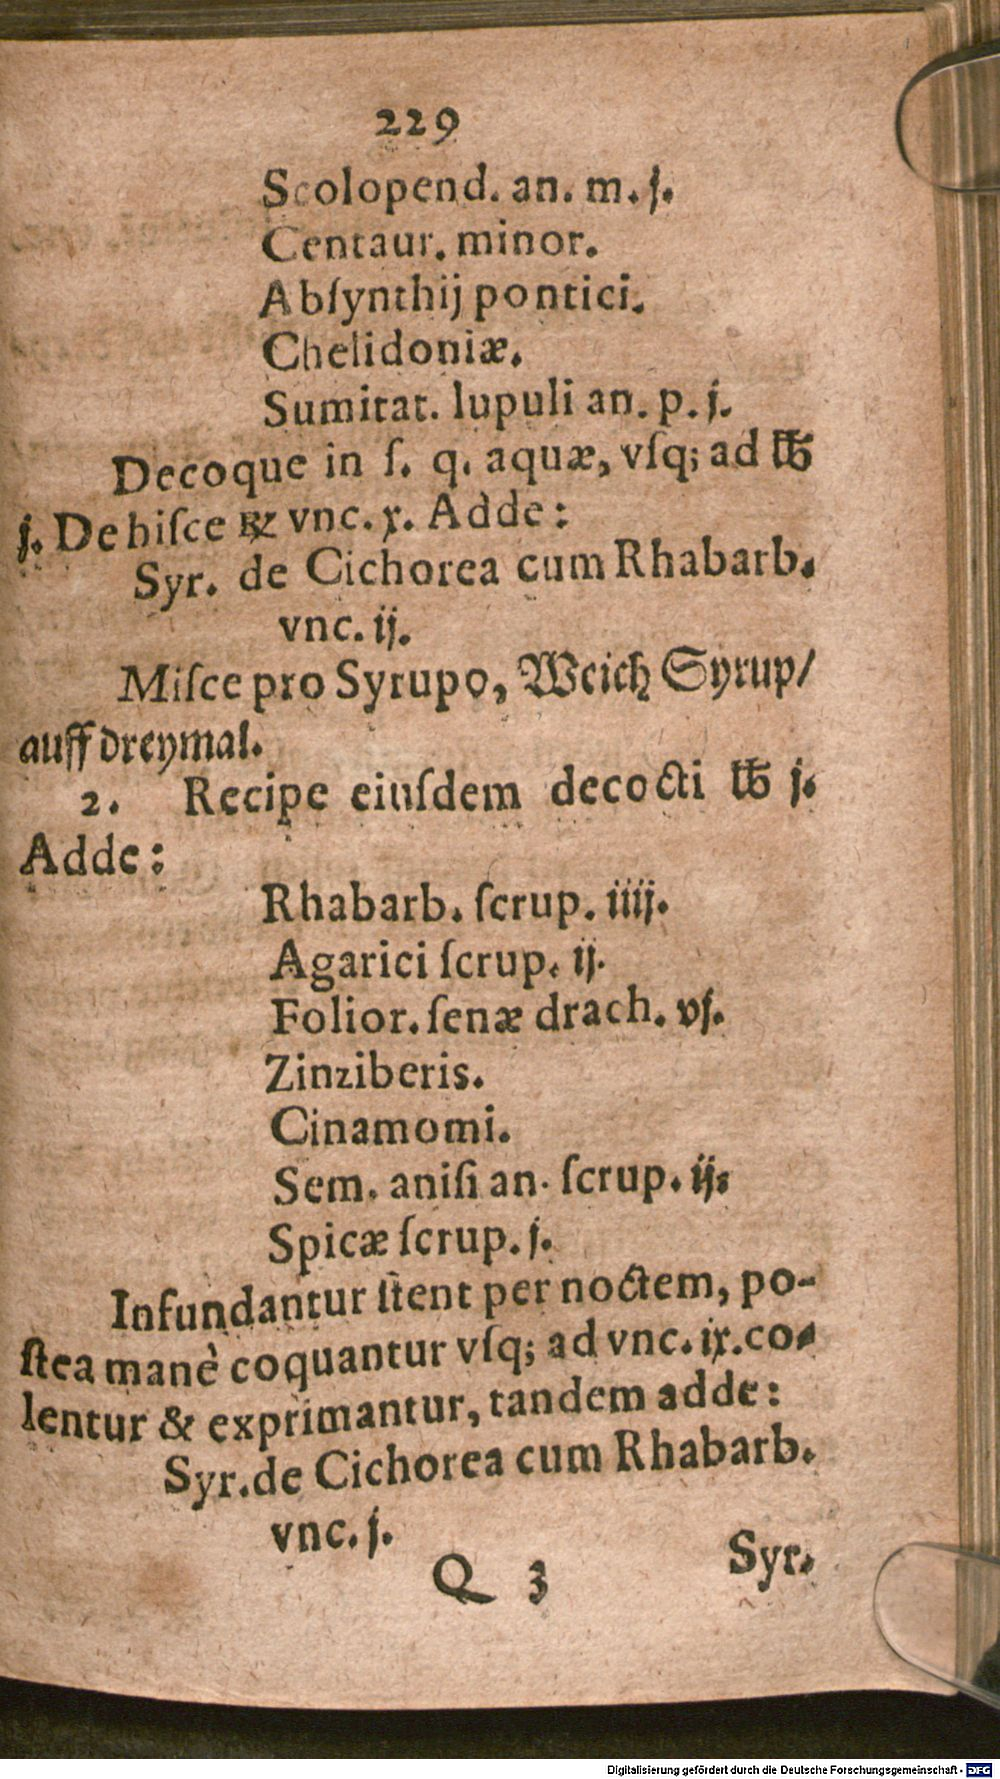 229
Scolopend. an. m. j.
Centaur. minor.
Abſynthij pontici.
Chelidoniæ.
Sumitat. lupuli an. p. j.
Decoque in ſ. q. aquæ, vſq; ad ℔
j. De hiſce ℞ vnc. x. Adde:
Syr. de Cichorea cum Rhabarb.
vnc. ij.
Miſce pro Syrupo, Weich Syrup/
auff dreymal.
2. Recipe eiuſdem decocti ℔ j.
Adde:
Rhabarb. ſcrup. iiij.
Agarici ſcrup. ij.
Folior. ſenæ drach. vj.
Zinziberis.
Cinamomi.
Sem. aniſi an. ſcrup. ij.
Spicæ ſcrup. j.
Infundantur ſtent per noctem, po-
ſtea manè coquantur vſq; ad vnc. ix. co-
lentur & exprimantur, tandem adde:
Syr. de Cichorea cum Rhabarb.
vnc. j.
Q 3
Syr.
Digitalisierung gefördert durch die Deutsche Forschungsgemeinschaft - DFG